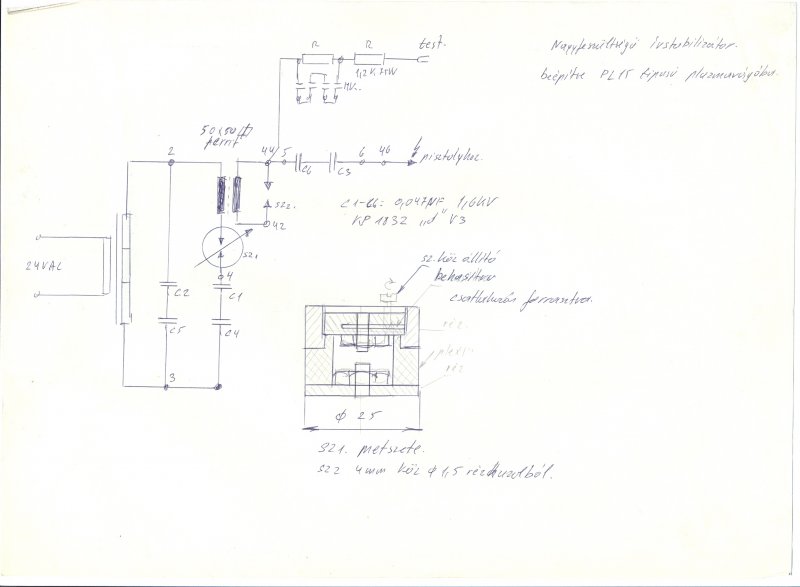 Nagyfeszültségű ívstabilizátor.
beépítve PL15 tipusú plazmavágóba.
R
R
test.
1,2K 75W
50/50
44
5
6
46
pisztolyhoz.
C6
C3
2
SZ2.
42
C1-C6: 0,047MF 1,6KV
KP 1832 „d” V3
SZ1
24VAC
4
C2
C1
C5
C4
3
sz.köz állító
behasítva
csatlakozás forrasztva.
réz.
plexi
réz
ϕ 25
SZ1. metszete.
SZ2 4mm köz ϕ 1,5 rézhuzalból.